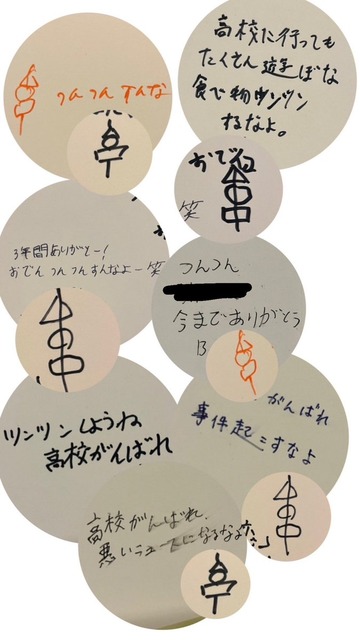 つんつんすんな
高校に行っても
たくさん遊ぼな
食べ物ツンツン
するなよ。
おでん
笑
3年間ありがとー!
おでんつんつんすんなよー笑
つんつん
今までありがとう
B
ツンツンしようね
高校がんばれ
がんばれ
事件起こすなよ
高校がんばれ
悪いニュースになるなよ